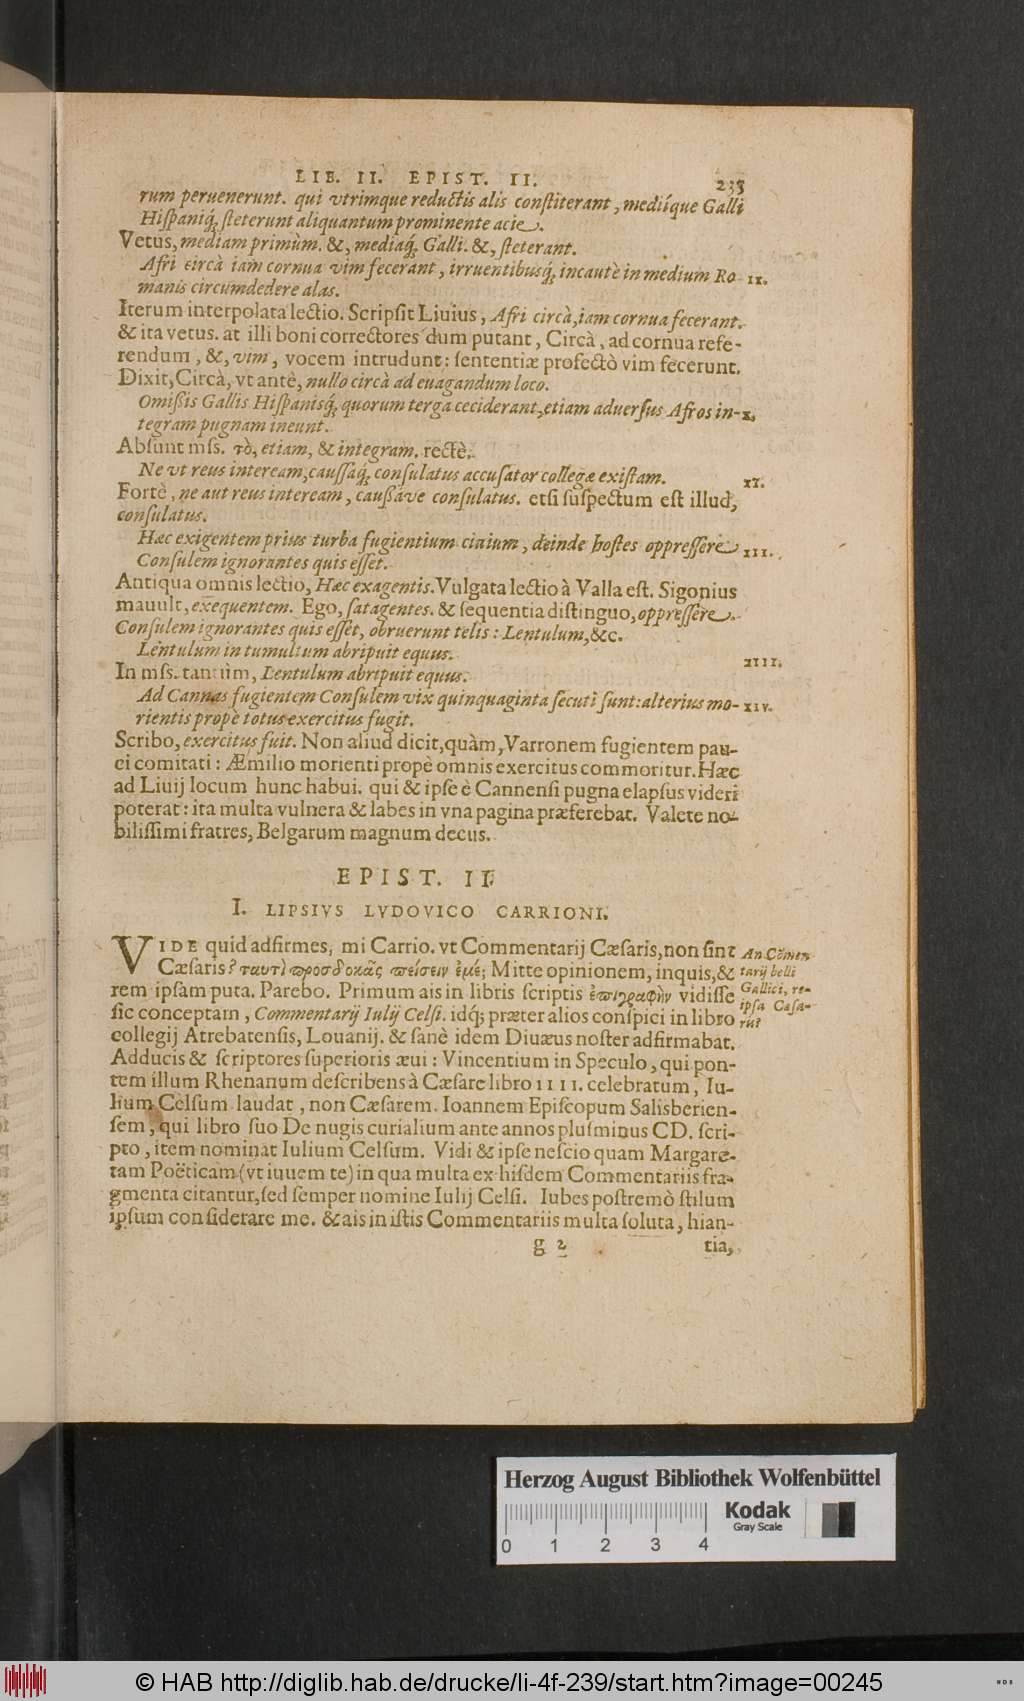 LIB. II. EPIST. II. 235
rum peruenerunt. qui vtrimque reductis alis constiterant, mediíque Galli
Hispaniq́; steterunt aliquantum prominente acie.
Vetus, mediam primùm. &, mediaq́; Galli. &, steterant.
Afri circà iam cornua vim fecerant, irruentibusq́; incautè in medium Ro- IX.
manis circumdedere alas.
Iterum interpolata lectio. Scripsit Liuius, Afri circà, iam cornua fecerant.
& ita vetus. at illi boni correctores dum putant, Circà, ad cornua refe-
rendum, &, vim, vocem intrudunt: sententiæ profectò vim fecerunt.
Dixit, Circà, vt antè, nullo circà ad euagandum loco.
Omißis Gallis Hispanisq́; quorum terga ceciderant, etiam aduersus Afros in- X.
tegram pugnam ineunt.
Absunt mss. τὸ, etiam, & integram. rectè.
Ne vt reus inteream, caussaq́; consulatus accusator collegæ existam. XI.
Fortè, ne aut reus inteream, caußâve consulatus. etsi suspectum est illud,
consulatus.
Hæc exigentem prius turba fugientium ciuium, deinde hostes oppressere XII.
Consulem ignorantes quis esset.
Antiqua omnis lectio, Hæc exagentis. Vulgata lectio à Valla est. Sigonius
mauult, exequentem. Ego, satagentes. & sequentia distinguo, oppressere.
Consulem ignorantes quis esset, obruerunt telis: Lentulum, &c.
Lentulum in tumultum abripuit equus. XIII.
In mss. tantùm, Lentulum abripuit equus.
Ad Cannas fugientem Consulem vix quinquaginta secuti sunt: alterius mo- XIV.
rientis propè totus exercitus fugit.
Scribo, exercitus fuit. Non aliud dicit, quàm, Varronem fugientem pau-
ci comitati: Æmilio morienti propè omnis exercitus commoritur. Hæc
ad Liuij locum hunc habui. qui & ipse è Cannensi pugna elapsus videri
poterat: ita multa vulnera & labes in vna pagina præferebat. Valete no-
bilissimi fratres, Belgarum magnum decus.
EPIST. II.
I. LIPSIVS LVDOVICO CARRIONI.
VIDE quid adfirmes, mi Carrio. vt Commentarij Cæsaris, non sint
Cæsaris? ταυτὶ προσδοκᾷς πείσειν ἐμέ; Mitte opinionem, inquis, &
rem ipsam puta. Parebo. Primum ais in libris scriptis ἐπιγραφὴν vidisse
sic conceptam, Commentarij Iulij Celsi. idq́; præter alios conspici in libro
collegij Atrebatensis, Louanij. & sanè idem Diuæus noster adfirmabat.
Adducis & scriptores superioris æui: Vincentium in Speculo, qui pon-
tem illum Rhenanum describens à Cæsare libro IIII. celebratum, Iu-
lium Celsum laudat, non Cæsarem. Ioannem Episcopum Salisberien-
sem, qui libro suo De nugis curialium ante annos plusminus CD. scri-
pto, item nominat Iulium Celsum. Vidi & ipse nescio quam Margare-
tam Poëticam (vt iuuem te) in qua multa ex hisdem Commentariis fra-
gmenta citantur, sed semper nomine Iulij Celsi. Iubes postremò stilum
ipsum considerare me. & ais in istis Commentariis multa soluta, hian-
g 2 tia,
An Cōmen
tarij belli
Gallici, re-
ipsa Cæsa-
ris?
Herzog August Bibliothek Wolfenbüttel
Kodak
Gray Scale
0 1 2 3 4
© HAB http://diglib.hab.de/drucke/li-4f-239/start.htm?image=00245